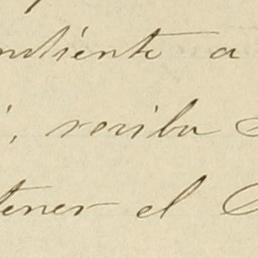 ndiente a
, reciba
tener el